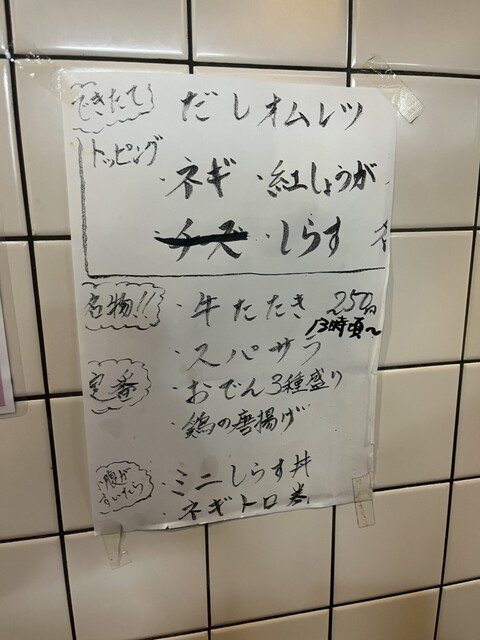 できたて だしオムレツ
トッピング
・ネギ ・紅しょうが
チーズ ・しらす
名物!! ・牛たたき 250円
13時頃~
・スパサラ
定番 ・おでん3種盛り
・鶏の唐揚げ
腹が すいたら ・ミニしらす丼
・ネギトロ巻